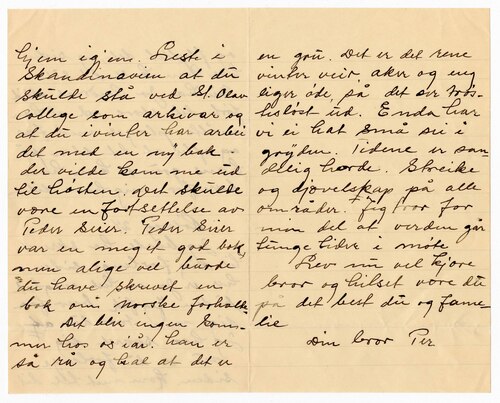 hjem igjen. Leste i
Skandinavien at du
skulde stå ved St. Olav
College som arkivar og
at du i vinter har arbei
det med en ny bok.
der vilde komme ud
til høsten. Det skulde
være en fortsettelse av
Peder Seier. Peder Seier
var en meget god bok,
men alige vel burde
du have skrevet en
bok om Norske forhold
Det blir ingen Som-
mer hos os iår. han er
så rå og kal at det er
en gru. Det er det rene
vinter veir, aker og eng
liger øde, på det ser trøs
tesløst ud. Enda har
vi ei hat små sii i
gryden. Tidene er san-
delig harde. Streike
og djovelskap på alle
områder. Jeg tror for
min del at verden går
tunge tider i møte
Lev nu vel kjære
bror og hilset være du
på det best du og fame-
lie
Din bror Per